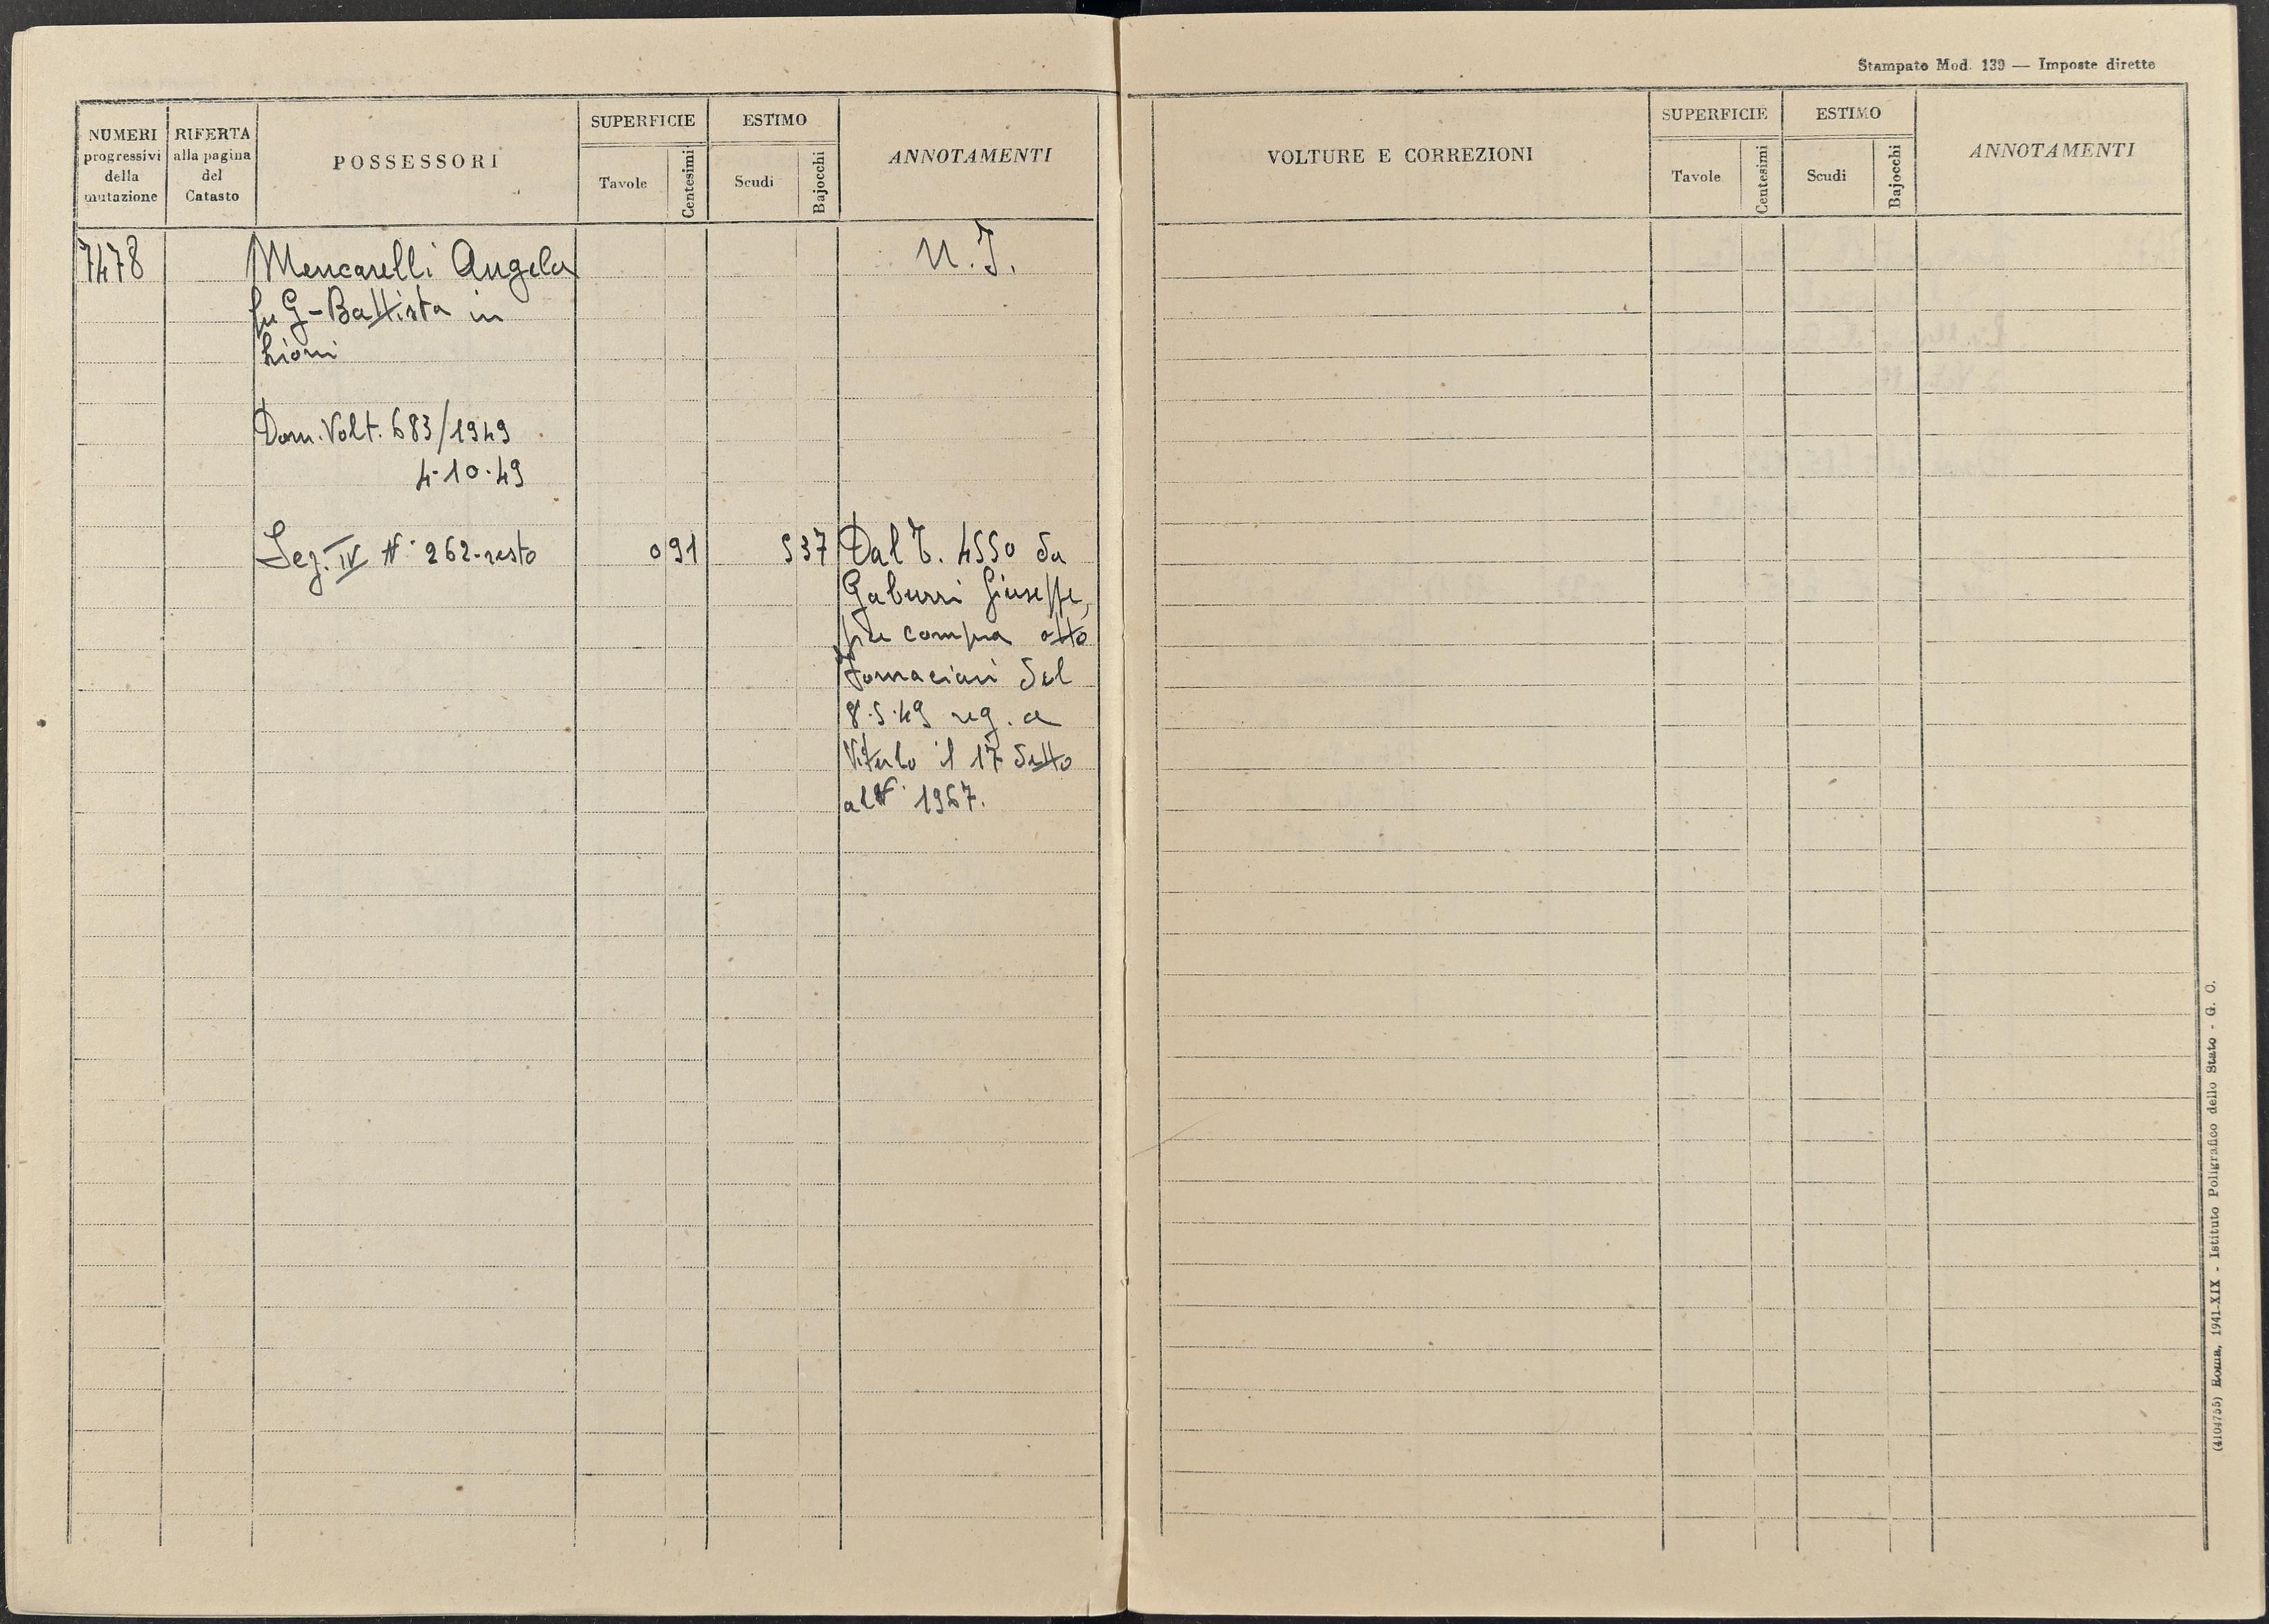 NUMERI progressivi della mutazione
RIFERTA alla pagina del Catasto
POSSESSORI
SUPERFICIE
Tavole
Centesimi
ESTIMO
Scudi
Bajocchi
ANNOTAMENTI
7478
Mencarelli Angela
fu G-Battista in
Lioni
N.I.
Dom. Volt. 683/1949
4.10.49
Sez. IV N. 262-resto
0 91
5 37
Dal T. 4550 da
Gaburri Giuseppe,
per compra atto
Fornaciari del
8.5.49 reg. a
Viterbo il 17 detto
al N. 1967.
Stampato Mod. 139 — Imposte dirette
VOLTURE E CORREZIONI
SUPERFICIE
Tavole
Centesimi
ESTIMO
Scudi
Bajocchi
ANNOTAMENTI
(4104755) Roma, 1941-XIX - Istituto Poligrafico dello Stato - G. C.